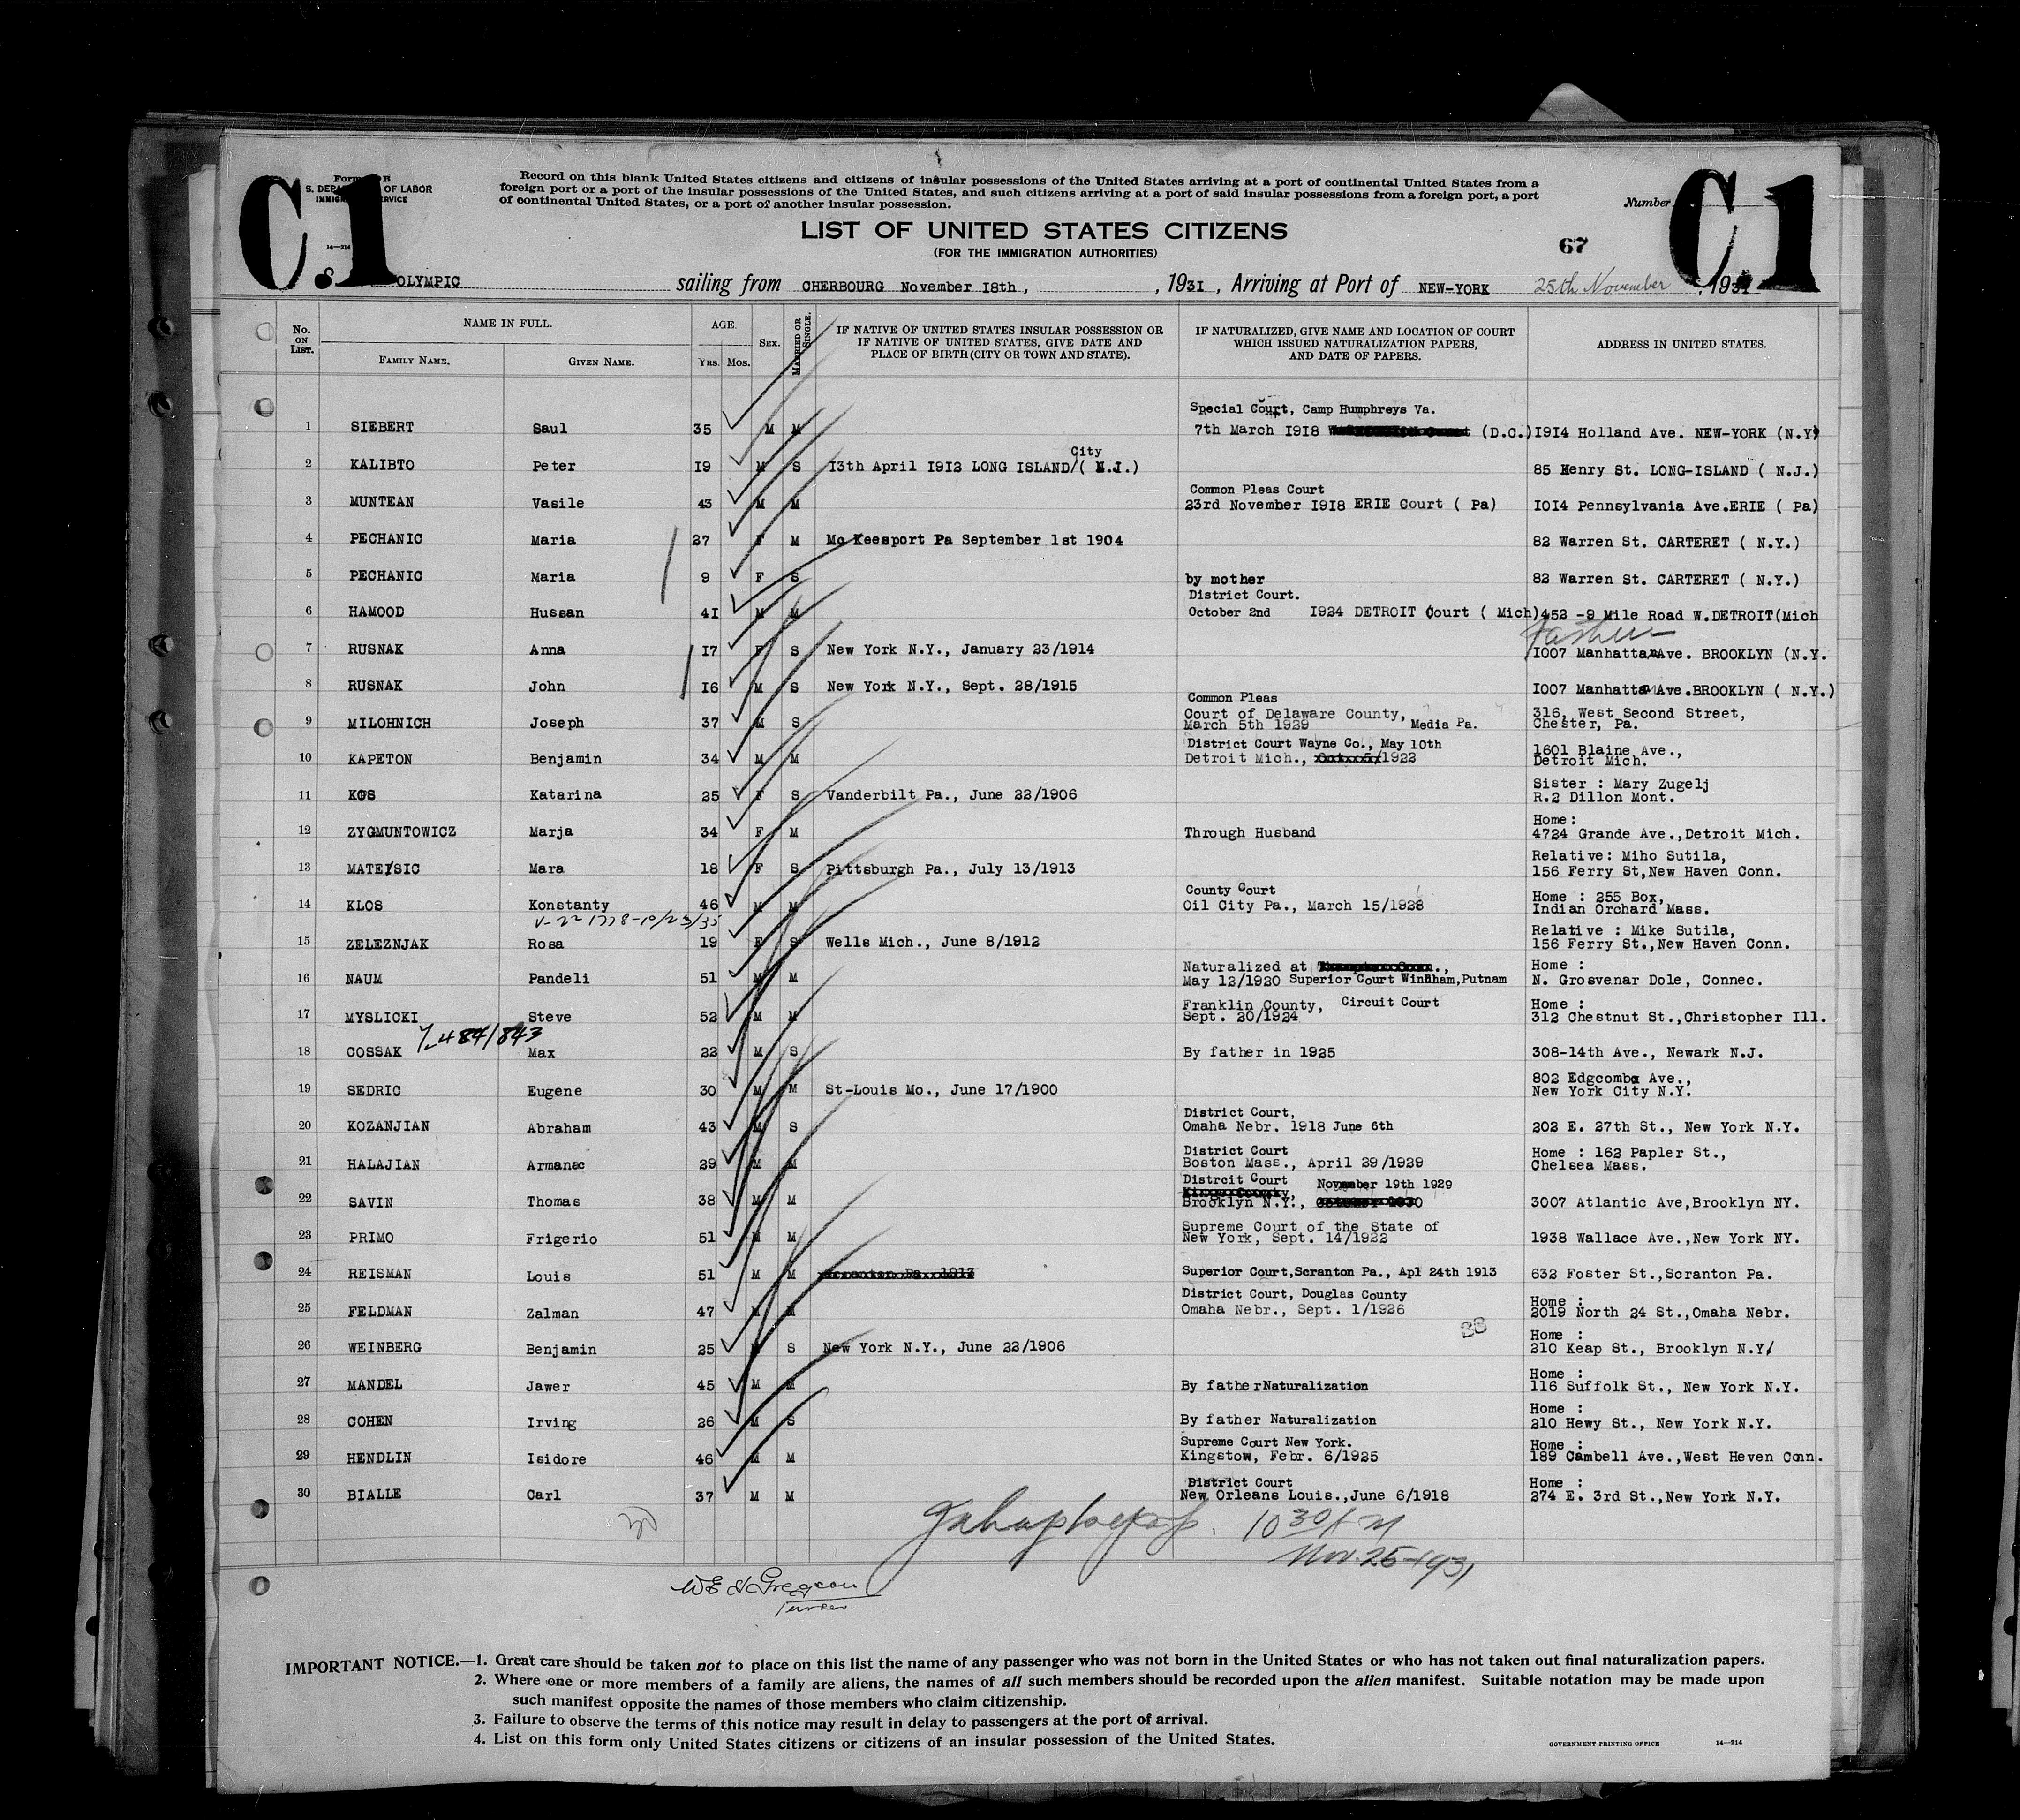 C.1
Form
S. DEPA OF LABOR
IMMIG SERVICE
14—214
Record on this blank United States citizens and citizens of insular possessions of the United States arriving at a port of continental United States from a
foreign port or a port of the insular possessions of the United States, and such citizens arriving at a port of said insular possessions from a foreign port, a port
of continental United States, or a port of another insular possession.
Number
C.1
LIST OF UNITED STATES CITIZENS
(FOR THE IMMIGRATION AUTHORITIES)
67
S OLYMPIC sailing from CHERBOURG November 18th, , 1931 , Arriving at Port of NEW-YORK 25th November , 1931
No. ON LIST. NAME IN FULL. AGE. SEX. MARRIED OR SINGLE. IF NATIVE OF UNITED STATES INSULAR POSSESSION OR IF NATIVE OF UNITED STATES, GIVE DATE AND PLACE OF BIRTH (CITY OR TOWN AND STATE). IF NATURALIZED, GIVE NAME AND LOCATION OF COURT WHICH ISSUED NATURALIZATION PAPERS, AND DATE OF PAPERS. ADDRESS IN UNITED STATES.
FAMILY NAME. GIVEN NAME. YRS. MOS.
Special Court, Camp Humphreys Va.
1 SIEBERT Saul 35 M M 7th March 1918 (D.C.) 1914 Holland Ave. NEW-YORK (N.Y)
City
2 KALIBTO Peter 19 M S 13th April 1912 LONG ISLAND/( N.J.) 85 Henry St. LONG-ISLAND ( N.J.)
Common Pleas Court
3 MUNTEAN Vasile 43 M M 23rd November 1918 ERIE Court ( Pa) 1014 Pennsylvania Ave.ERIE ( Pa)
4 PECHANIC Maria 27 F M Mc Keesport Pa September 1st 1904 82 Warren St. CARTERET ( N.Y.)
5 PECHANIC Maria 9 F S by mother 82 Warren St. CARTERET ( N.Y.)
District Court.
6 HAMOOD Hussan 41 M M October 2nd 1924 DETROIT Court ( Mich) 452 -9 Mile Road W.DETROIT(Mich
7 RUSNAK Anna 17 F S New York N.Y., January 23/1914 1007 Manhattan Ave. BROOKLYN (N.Y.
8 RUSNAK John 16 M S New York N.Y., Sept. 28/1915 1007 Manhattan Ave.BROOKLYN ( N.Y.)
Common Pleas
9 MILOHNICH Joseph 37 M S Court of Delaware County, 316, West Second Street,
March 5th 1929 Media Pa. Chester, Pa.
District Court Wayne Co., May 10th 1601 Blaine Ave.,
10 KAPETON Benjamin 34 M M Detroit Mich., 1922 Detroit Mich.
Sister : Mary Zugelj
11 KOS Katarina 25 F S Vanderbilt Pa., June 22/1906 R.2 Dillon Mont.
Home:
12 ZYGMUNTOWICZ Marja 34 F M Through Husband 4724 Grande Ave.,Detroit Mich.
Relative: Miho Sutila,
13 MATE/SIC Mara 18 F S Pittsburgh Pa., July 13/1913 156 Ferry St,New Haven Conn.
County Court Home : 255 Box,
14 KLOS Konstanty 46 M M Oil City Pa., March 15/1928 Indian Orchard Mass.
Relative : Mike Sutila,
15 ZELEZNJAK Rosa 19 F S Wells Mich., June 8/1912 156 Ferry St.,New Haven Conn.
Naturalized at Home :
16 NAUM Pandeli 51 M M May 12/1920 Superior Court Windham,Putnam N. Grosvenar Dole, Connec.
Franklin County, Circuit Court Home :
17 MYSLICKI Steve 52 M M Sept. 20/1924 312 Chestnut St.,Christopher Ill.
484/843
18 COSSAK Max 22 M S By father in 1925 308-14th Ave., Newark N.J.
802 Edgcomb Ave.,
19 SEDRIC Eugene 30 M M St-Louis Mo., June 17/1900 New York City N.Y.
District Court,
20 KOZANJIAN Abraham 43 M S Omaha Nebr. 1918 June 6th 202 E. 27th St., New York N.Y.
District Court Home : 162 Papler St.,
21 HALAJIAN Armanec 29 M M Boston Mass., April 29/1929 Chelsea Mass.
Distreit Court November 19th 1929
22 SAVIN Thomas 38 M M Brooklyn N.Y., 3007 Atlantic Ave,Brooklyn NY.
Supreme Court of the State of
23 PRIMO Frigerio 51 M M New York, Sept. 14/1922 1938 Wallace Ave.,New York NY.
24 REISMAN Louis 51 M M Superior Court,Scranton Pa., Apl 24th 1913 632 Foster St.,Scranton Pa.
District Court, Douglas County Home :
25 FELDMAN Zalman 47 M M Omaha Nebr., Sept. 1/1926 2019 North 24 St.,Omaha Nebr.
38
Home :
26 WEINBERG Benjamin 25 M S New York N.Y., June 22/1906 210 Keap St., Brooklyn N.Y.
Home :
27 MANDEL Jawer 45 M M By father Naturalization 116 Suffolk St., New York N.Y.
Home :
28 COHEN Irving 26 M S By father Naturalization 210 Hewy St., New York N.Y.
Supreme Court New York. Home :
29 HENDLIN Isidore 46 M M Kingstow, Febr. 6/1925 189 Cambell Ave.,West Heven Conn.
District Court Home :
30 BIALLE Carl 37 M M New Orleans Louis.,June 6/1918 274 E. 3rd St.,New York N.Y.
10 30
Nov. 25-1931
IMPORTANT NOTICE.—1. Great care should be taken not to place on this list the name of any passenger who was not born in the United States or who has not taken out final naturalization papers.
2. Where one or more members of a family are aliens, the names of all such members should be recorded upon the alien manifest. Suitable notation may be made upon
such manifest opposite the names of those members who claim citizenship.
3. Failure to observe the terms of this notice may result in delay to passengers at the port of arrival.
4. List on this form only United States citizens or citizens of an insular possession of the United States.
GOVERNMENT PRINTING OFFICE 14—214